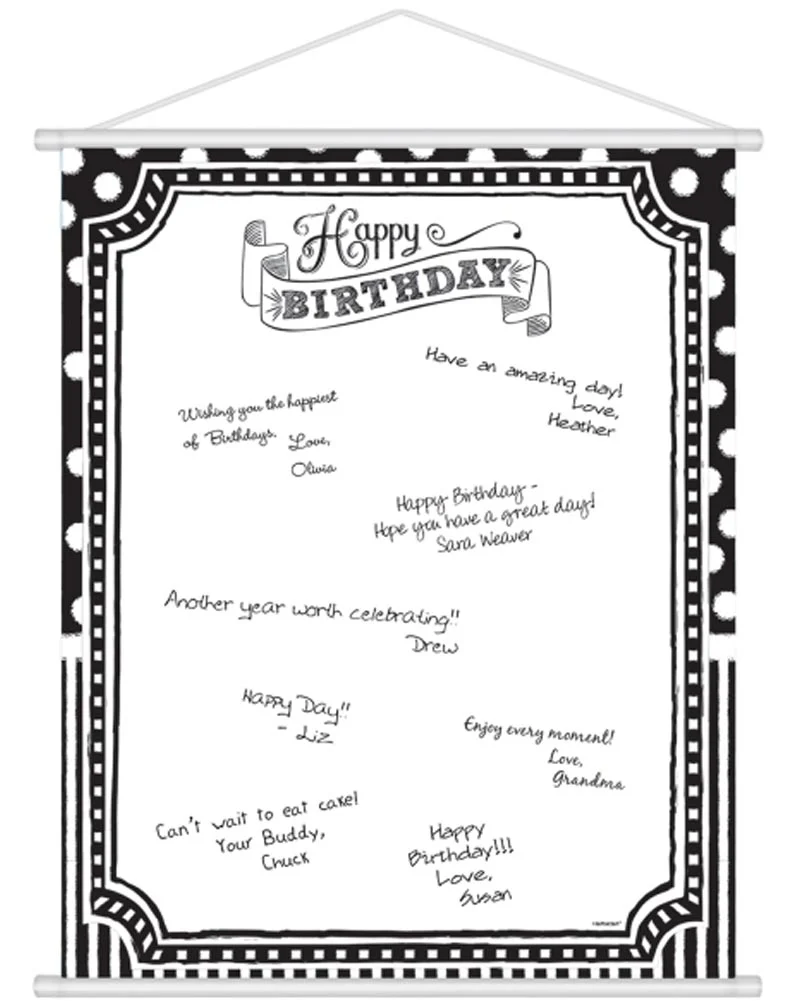 Happy
BIRTHDAY
Have an amazing day!
Love,
Heather
Wishing you the happiest
of Birthdays.
Love,
Olivia
Happy Birthday -
Hope you have a great day!
Sara Weaver
Another year worth celebrating!!
Drew
Happy Day!!
- Liz
Enjoy every moment!
Love,
Grandma
Can't wait to eat cake!
Your Buddy,
Chuck
Happy
Birthday!!!
Love,
Susan